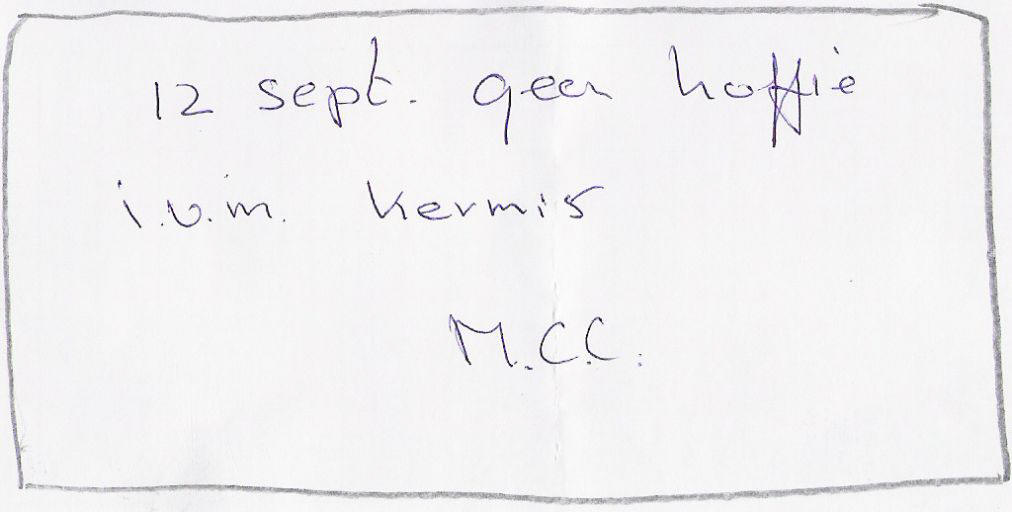 12 sept. geen koffie
i.v.m. kermis
M.C.C.